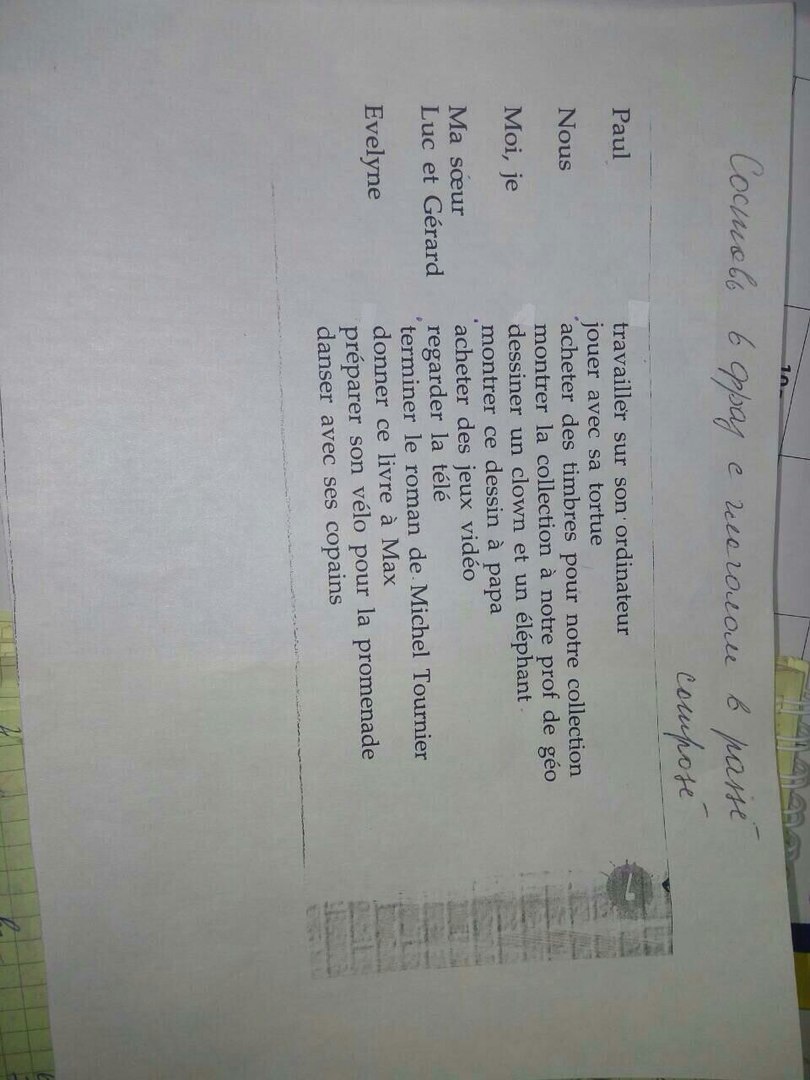 Составь 6 фраз с глаголом в passé
composé
Paul travailler sur son ordinateur
jouer avec sa tortue
Nous acheter des timbres pour notre collection
montrer la collection à notre prof de géo
Moi, je dessiner un clown et un éléphant
montrer ce dessin à papa
Ma sœur acheter des jeux vidéo
Luc et Gérard regarder la télé
terminer le roman de Michel Tournier
Evelyne donner ce livre à Max
préparer son vélo pour la promenade
danser avec ses copains